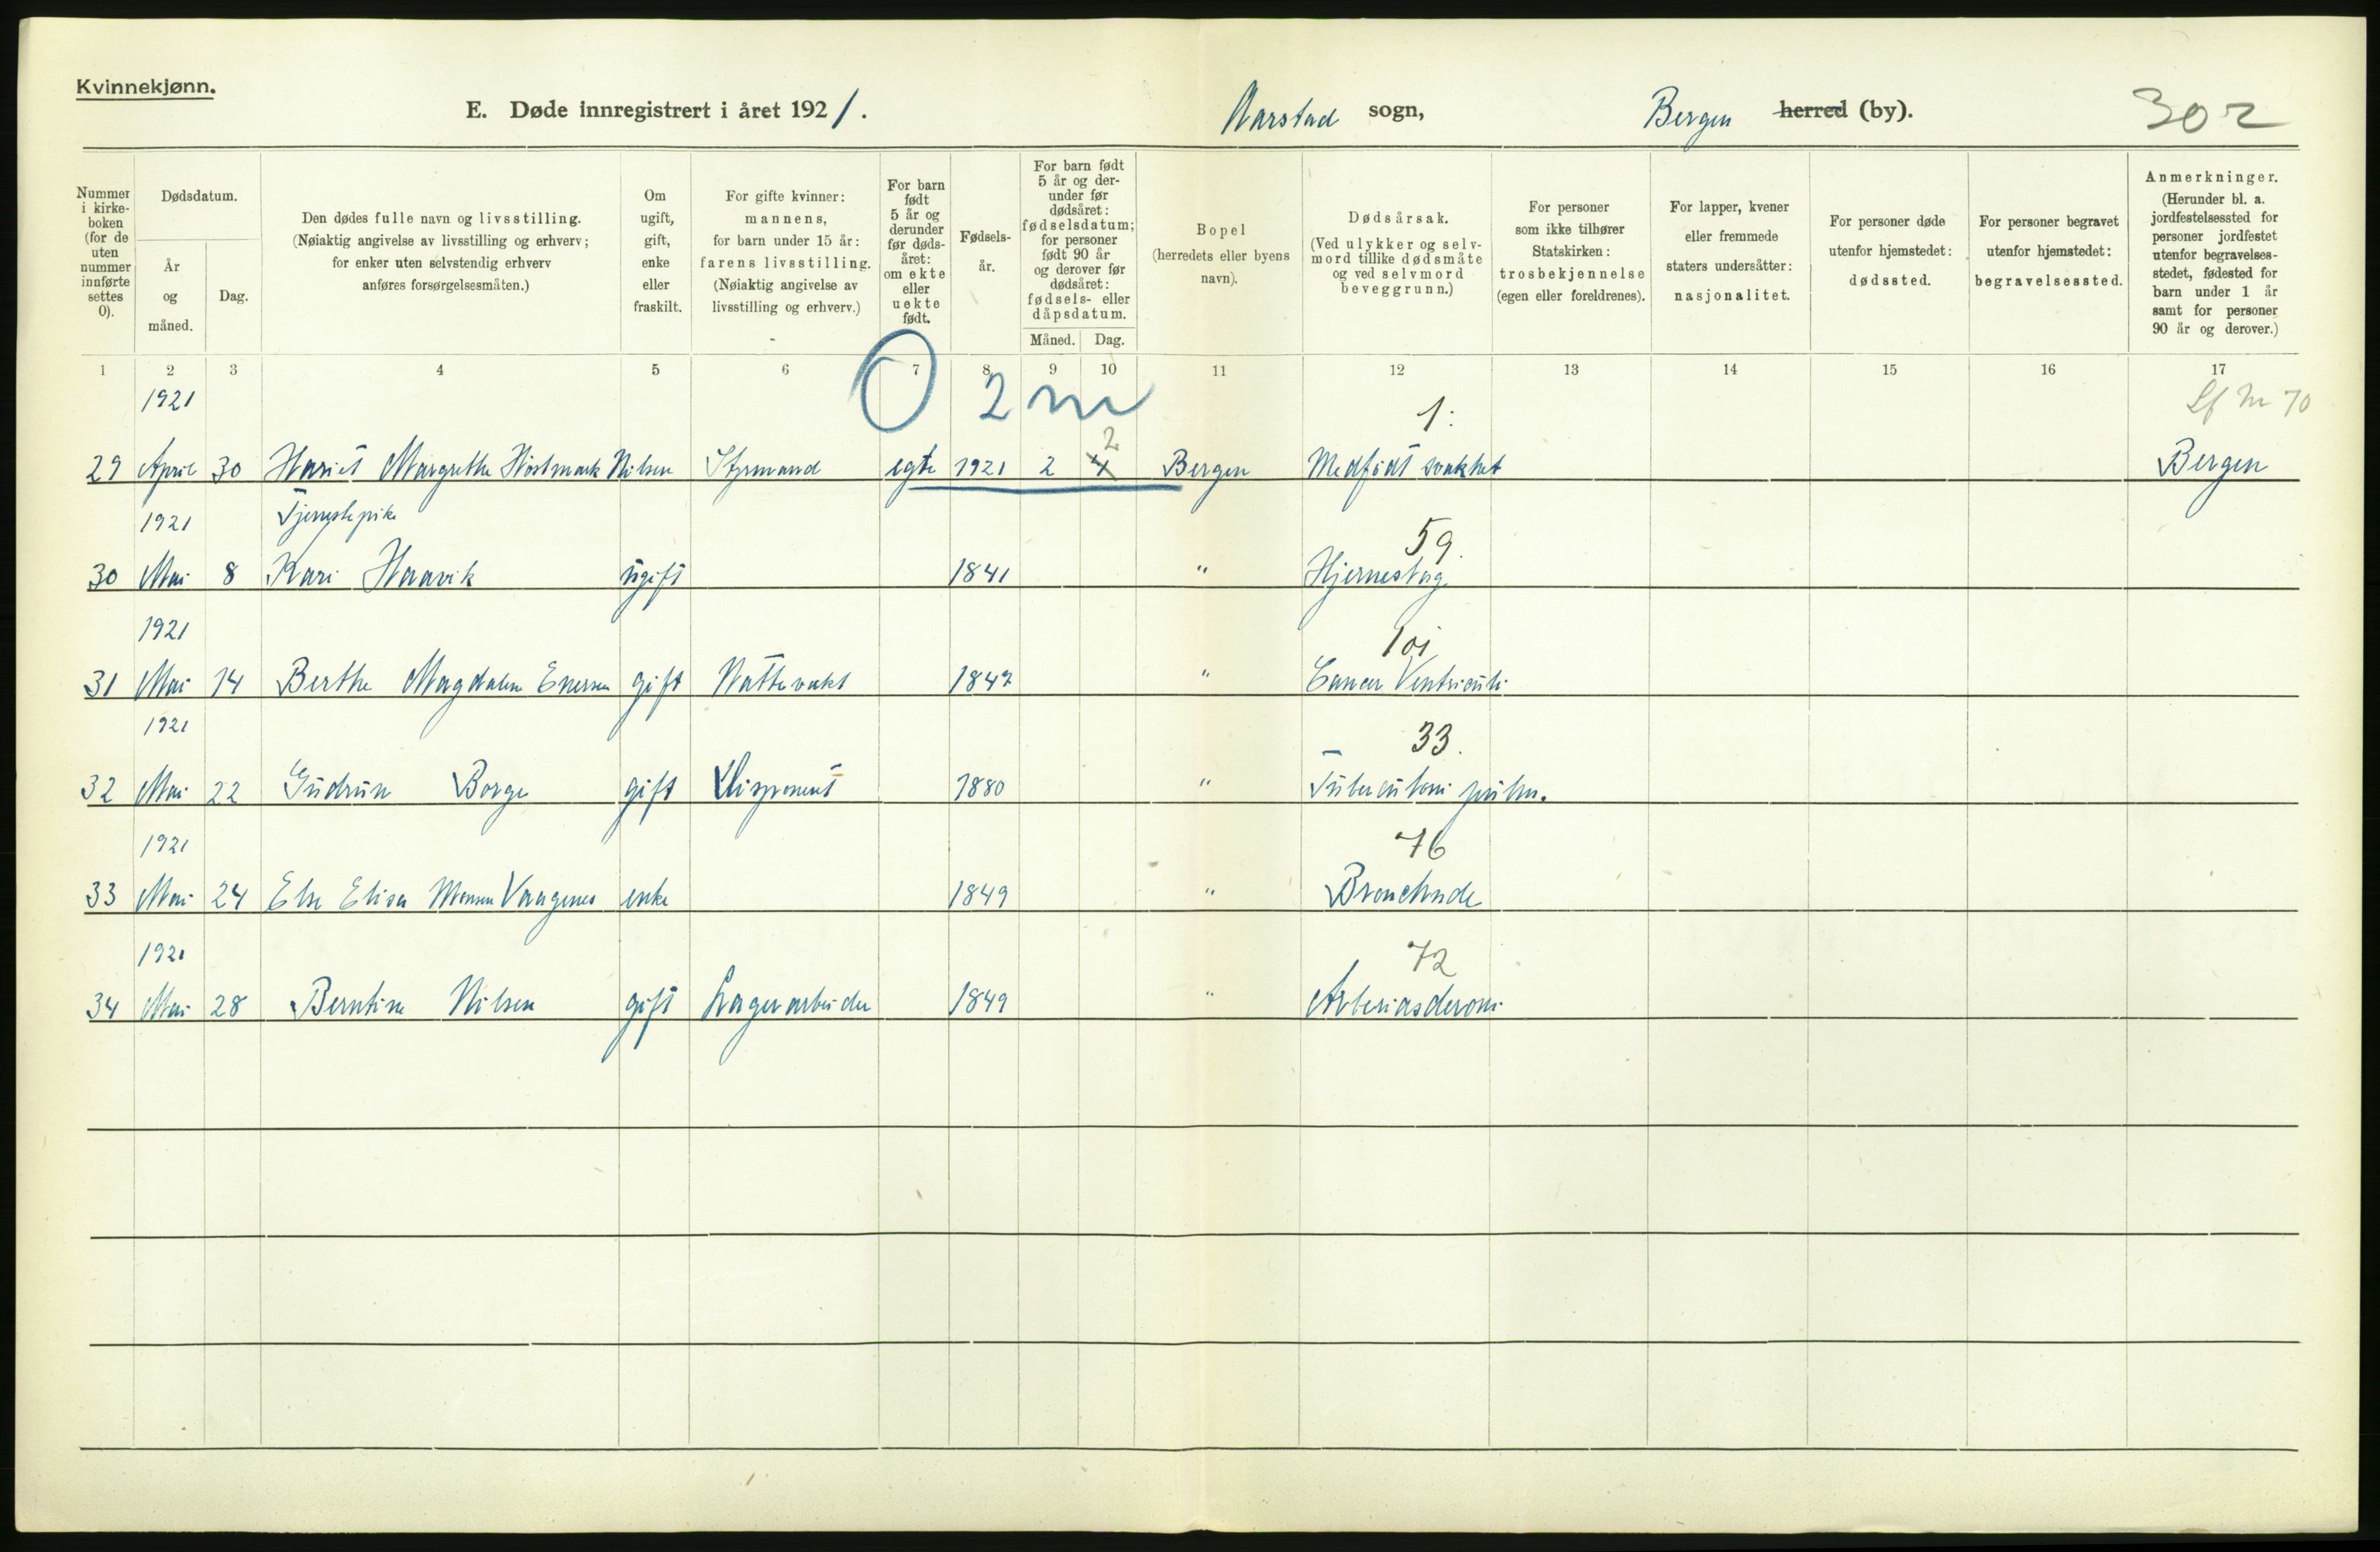 Kvinnekjønn.
E. Døde innregistrert i året 1921. Aarstad sogn, Bergen herred (by). 302
Nummer i kirke-boken (for de uten nummer innførte settes 0).
Dødsdatum.
År og måned.
Dag.
Den dødes fulle navn og livsstilling. (Nøiaktig angivelse av livsstilling og erhverv; for enker uten selvstendig erhverv anføres forsørgelsesmåten.)
Om ugift, gift, enke eller fraskilt.
For gifte kvinner: mannens, for barn under 15 år: farens livsstilling. (Nøiaktig angivelse av livsstilling og erhverv.)
For barn født 5 år og derunder før døds-året: om ekte eller uekte født.
Fødsels-år.
For barn født 5 år og der-under før dødsåret: fødselsdatum; for personer født 90 år og derover før dødsåret: fødsels- eller dåpsdatum.
Måned. Dag.
Bopel (herredets eller byens navn).
Dødsårsak. (Ved ulykker og selv-mord tillike dødsmåte og ved selvmord beveggrunn.)
For personer som ikke tilhører Statskirken: trosbekjennelse (egen eller foreldrenes).
For lapper, kvener eller fremmede staters undersåtter: nasjonalitet.
For personer døde utenfor hjemstedet: dødssted.
For personer begravet utenfor hjemstedet: begravelsessted.
Anmerkninger. (Herunder bl. a. jordfestelsessted for personer jordfestet utenfor begravelses-stedet, fødested for barn under 1 år samt for personer 90 år og derover.)
1 2 3 4 5 6 7 8 9 10 11 12 13 14 15 16 17
1921 0 2 m 1: 70
2
29 April 30 Hariet Margrethe Høstmark Nilsen Styrmand egte 1921 2 4 Bergen Medfødt svakhet Bergen
1921 Tjenestepike 59.
30 Mai 8 Kari Haavik ugift 1841 " Hjerneslag
1921 101
31 Mai 14 Berthe Magdalen Enersen gift Nattevakt 1849 " Cancer Ventriculi
1921 33.
32 Mai 22 Gudrun Borge gift Disponent 1880 " Tuberculosis pulm.
1921 76
33 Mai 24 Else Elisa Monsen Vaagenes enke 1849 "
1921 72
34 Mai 28 Berntine Nilsen gift Lagerarbeider 1849 "